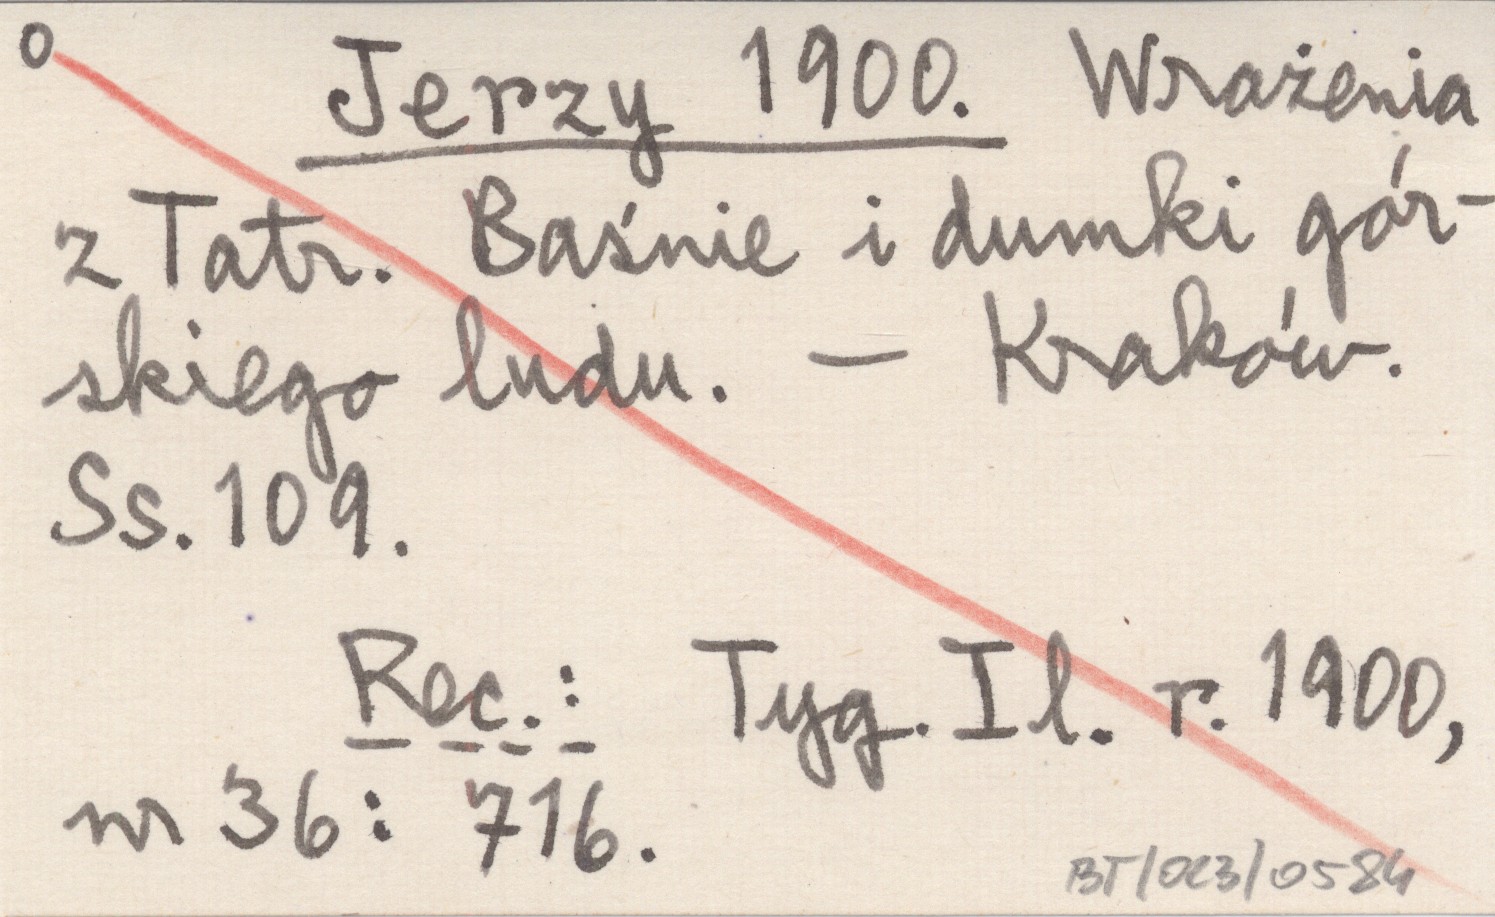 o Jerzy 1900. Wrażenia
z Tatr. Baśnie i dumki gór-
skiego ludu. — Kraków.
Ss. 109.
Rec.: Tyg. Il. r. 1900,
nr 36: 716.
BT/023/0584